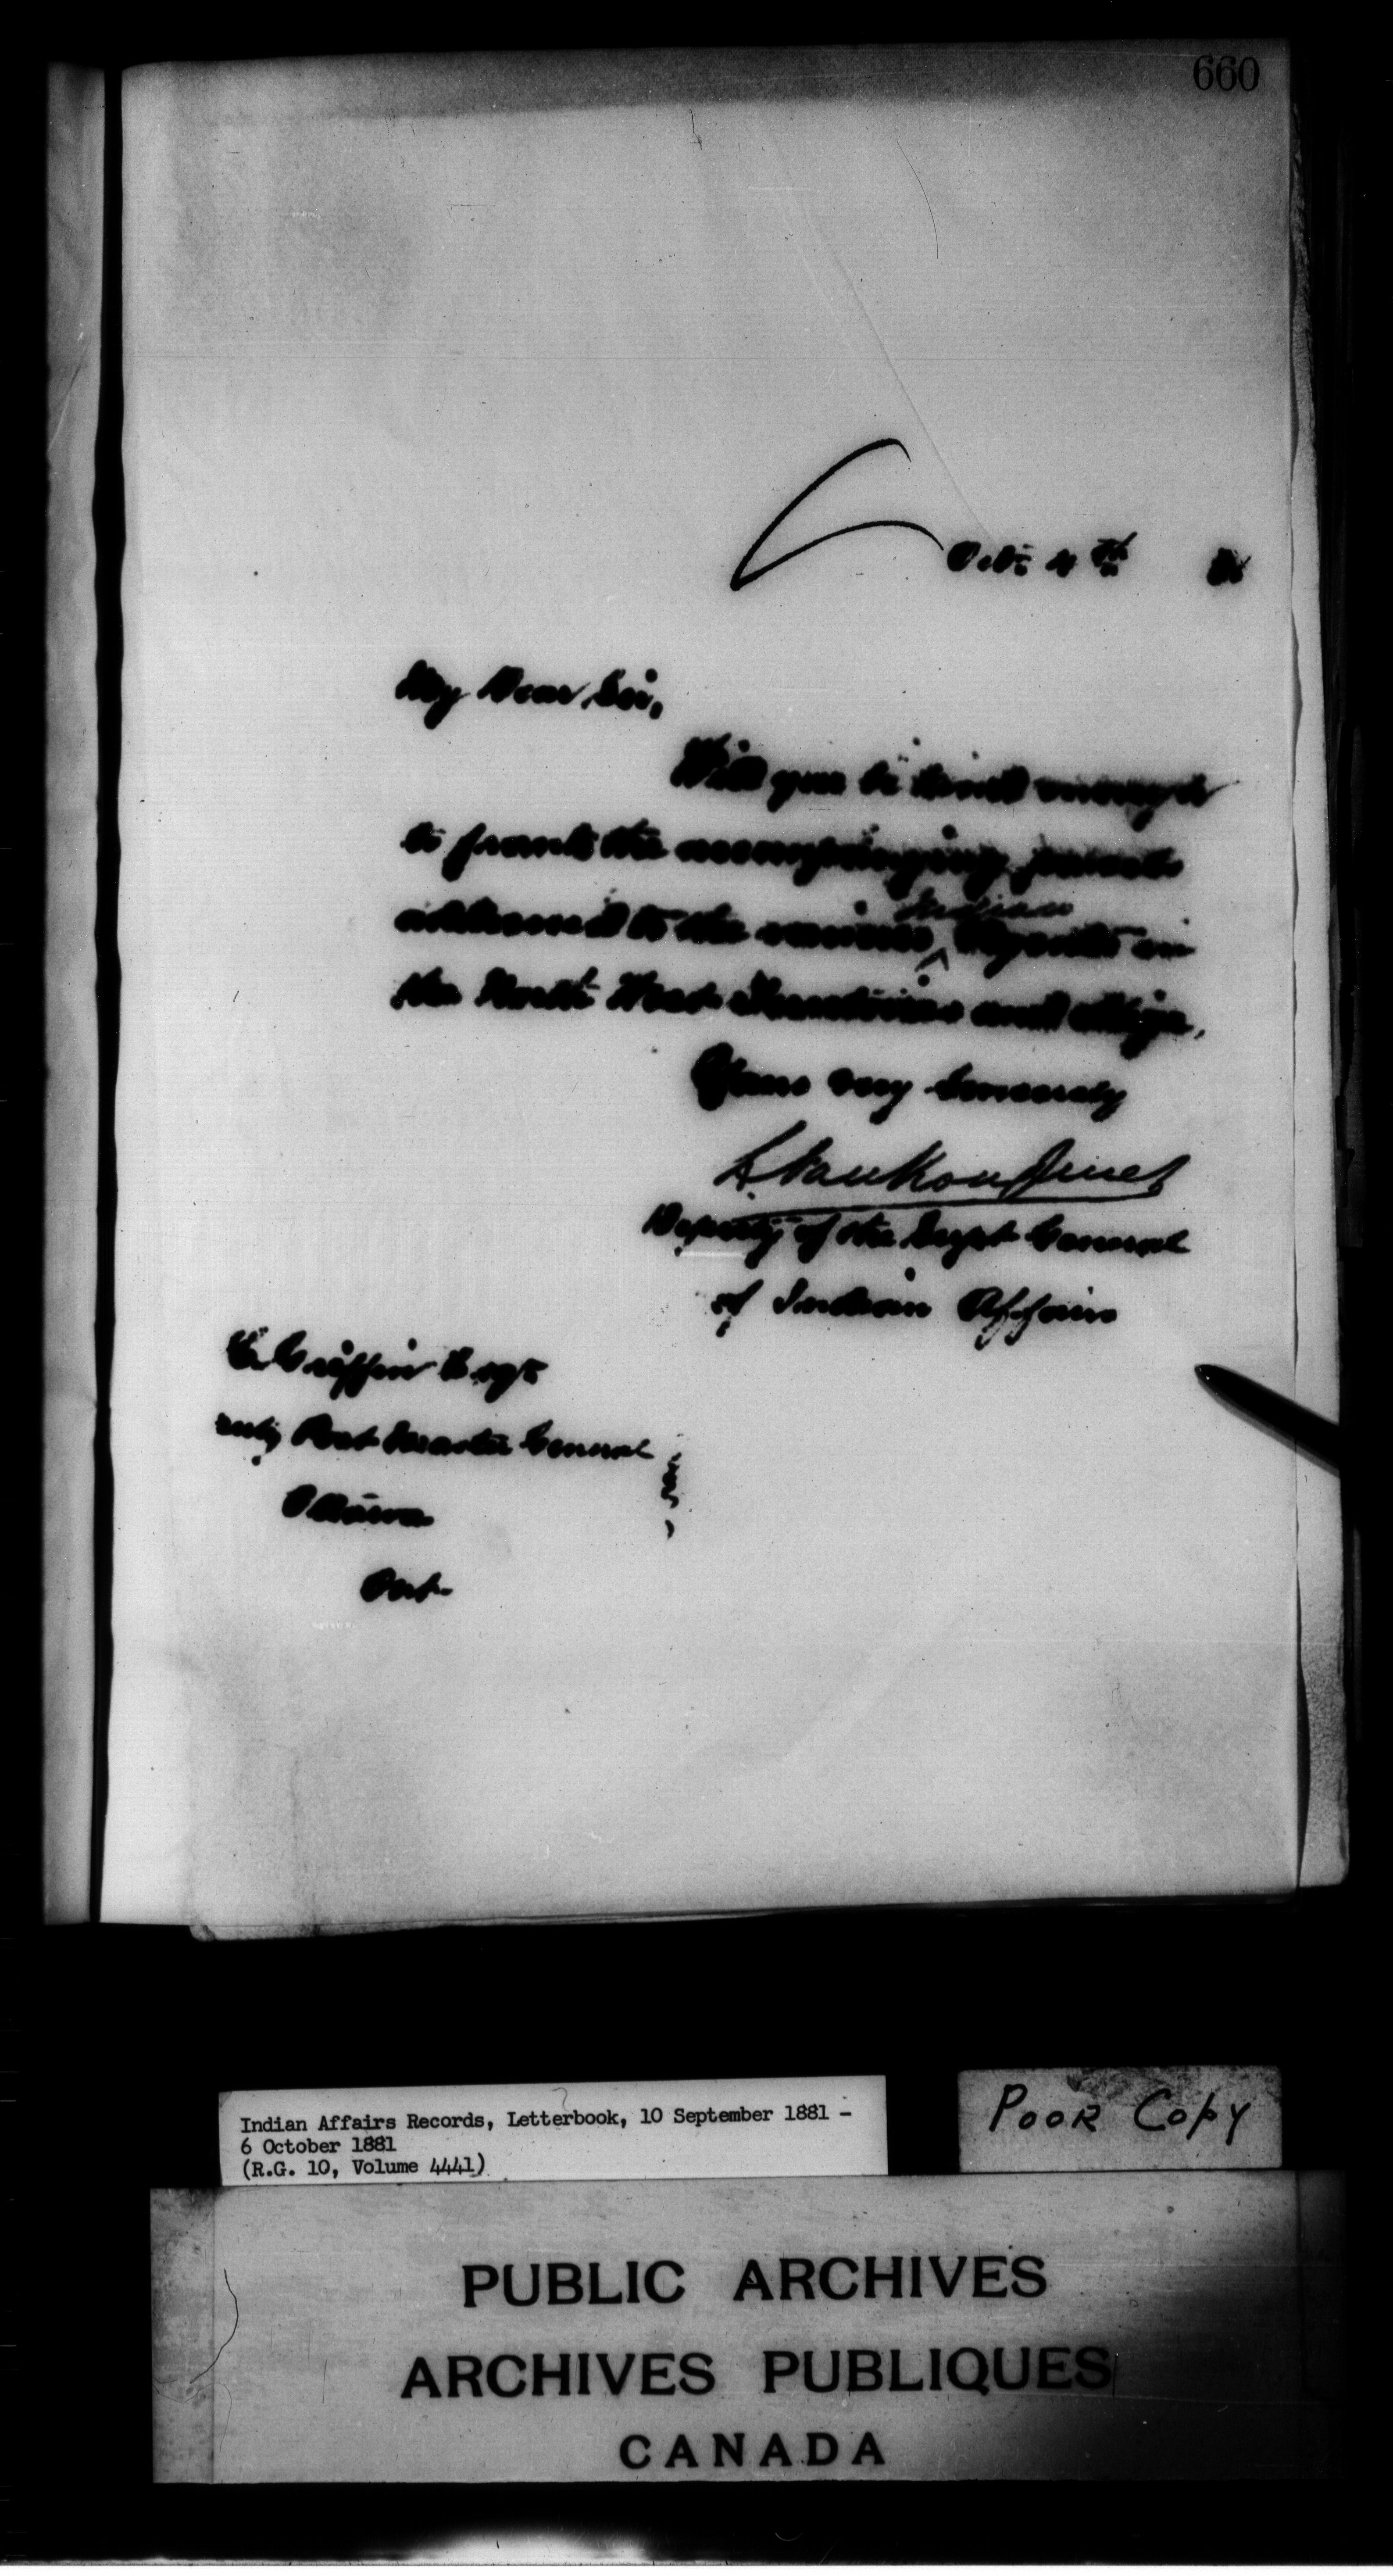 660
Oct. 4th 81
My Dear Sir,
Will you be kind enough
to frank the accompanying parcels
addressed to the various ^ Indian Agents in
the North West Territories and oblige,
Yours very Sincerely
L. VanKoughnet
Deputy of the Supt General
of Indian Affairs
Griffin Esqr
uty Post Master General
Ottawa
Ont
Indian Affairs Records, Letterbook, 10 September 1881 -
6 October 1881
(R.G. 10, Volume 4441)
POOR COPY
PUBLIC ARCHIVES
ARCHIVES PUBLIQUES
CANADA